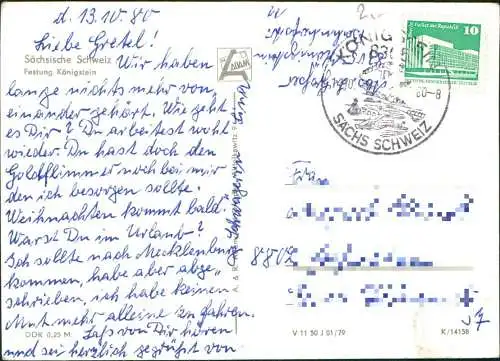 d. 13.10.80
Liebe Gretel!
Wir haben
lange nichts mehr von-
einander gehört. Wie geht
es Dir? Du arbeitest wohl
wieder. Du hast doch den
Goldflimmer noch bei mir
den ich besorgen sollte.
Weihnachten kommt bald.
Warst Du im Urlaub?
Ich sollte nach Mecklenburg
kommen, habe aber abge-
schrieben, ich habe keinen
Mut mehr alleine zu fahren.
Lass von Dir hören
und sei herzlich gegrüßt von
Schwägerin
Sächsische Schweiz
Festung Königstein
DDR 0,25 M
V 11 50 J 01/79
K/14158
KÖNIGSTEIN
SÄCHS SCHWEIZ
10
Frau
8802